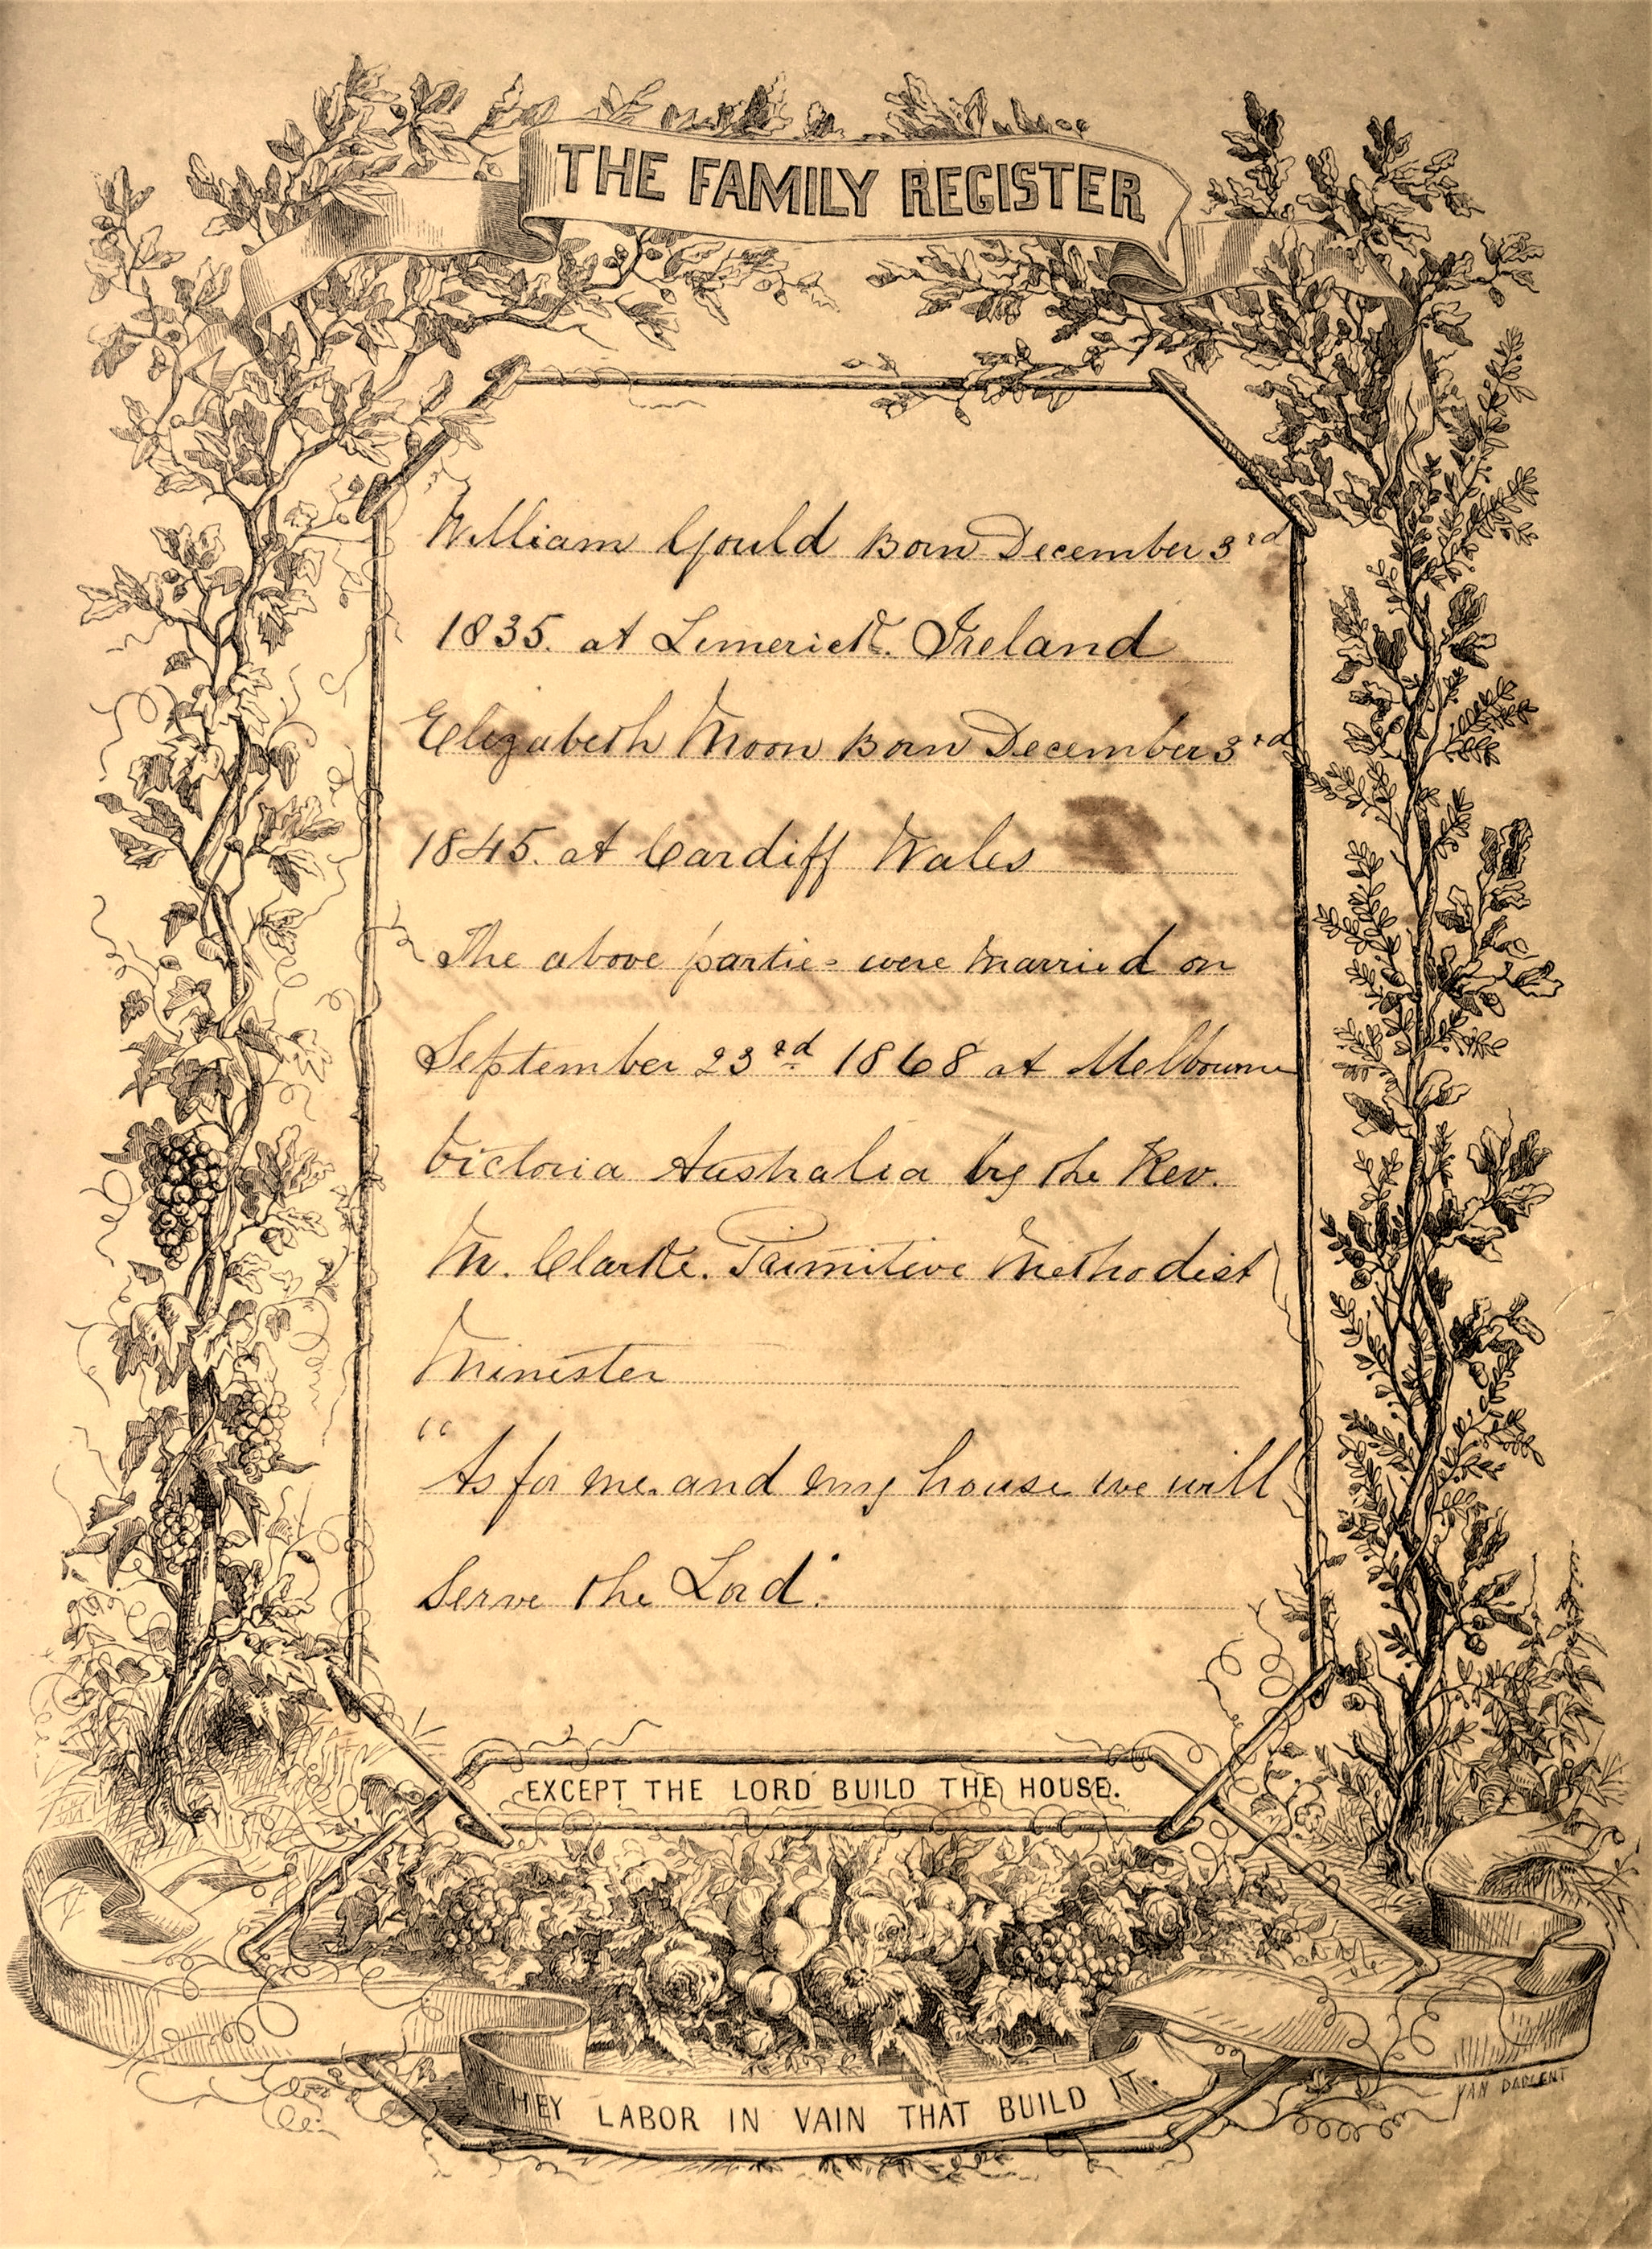 THE FAMILY REGISTER
William Gould Born December 3rd
1835. at Limerick. Ireland
Elizabeth Moon Born December 3rd
1845. at Cardiff Wales
The above parties were Married on
September 23rd 1868 at Melbourne
Victoria Australia by the Rev.
M. Clarke. Primitive Methodist
Minister
"As for me and my house we will
Serve the Lord."
EXCEPT THE LORD BUILD THE HOUSE.
THEY LABOR IN VAIN THAT BUILD IT.
YAN DARGENT